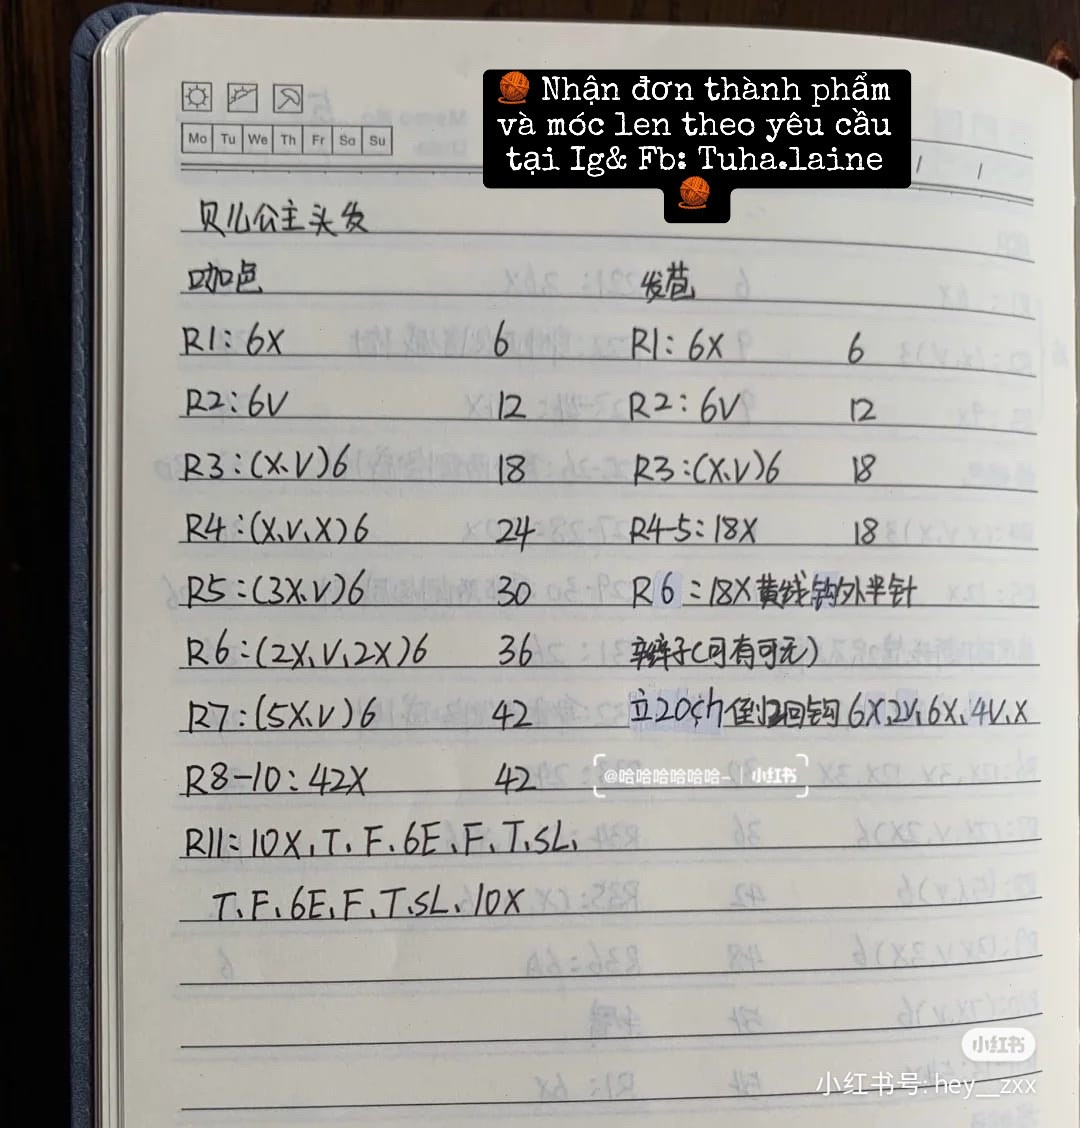 Nhận đơn thành phẩm
và móc len theo yêu cầu
tại Ig& Fb: Tuha.laine
Mo Tu We Th Fr Sa Su
贝儿公主头发
咖色
R1:6X 6
R2:6V 12
R3:(X、V)6 18
R4:(X、V、X)6 24
R5:(3X、V)6 30
R6:(2X、V、2X)6 36
R7:(5X、V)6 42
R8-10:42X 42
R11:10X、T、F、6E、F、T、SL、
T、F、6E、F、T、SL、10X
发苞
R1:6X 6
R2:6V 12
R3:(X、V)6 18
R4-5:18X 18
R6:18X黄线钩外半针
辫子(可有可无)
立20ch倒2回钩6X、2V、6X、4V、X
@哈哈哈哈哈哈-|小红书
小红书
小红书号:hey__zxx